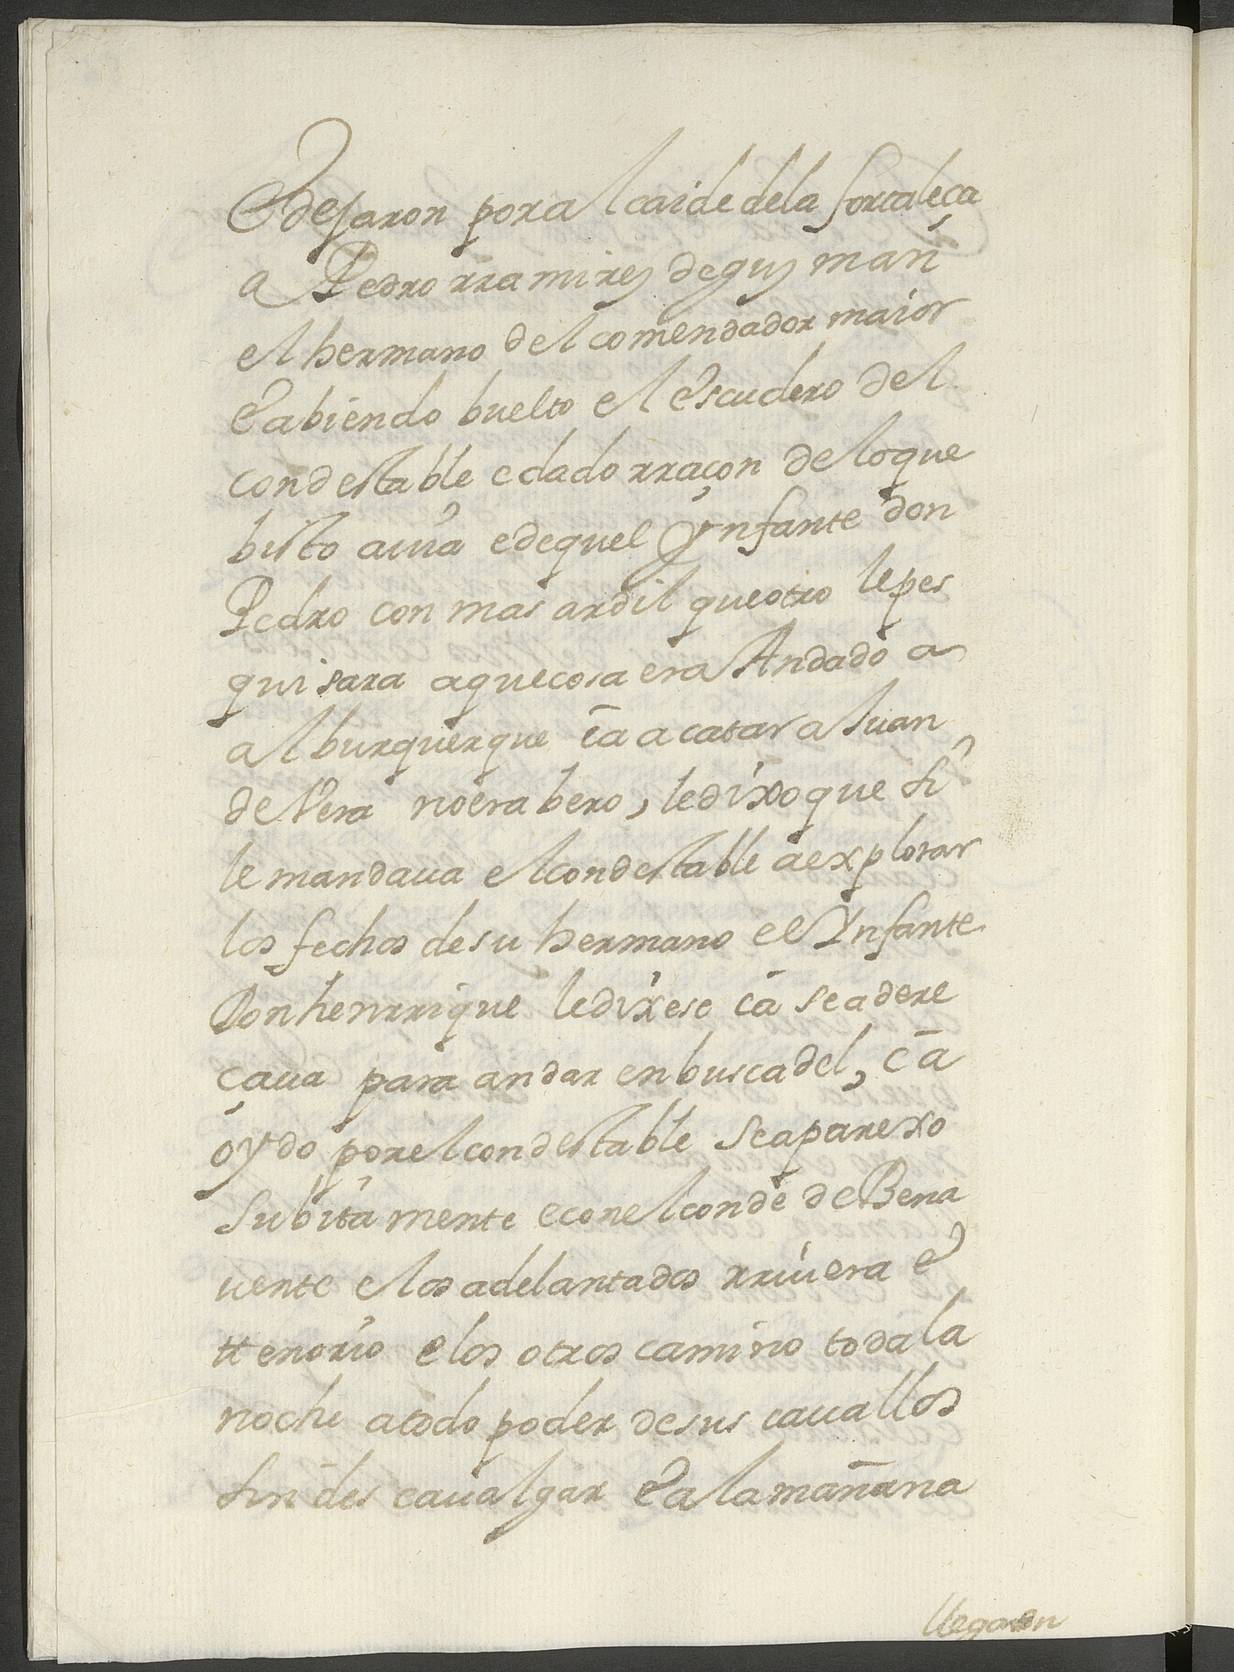 E dejaron por alcaide de la fortaleça
a Pedro rramires de gusman
el hermano del comendador maior
E abiendo buelto el Escudero del
condestable e dado rraçon de lo que
bisto avia e de quel Ynfante don
Pedro con mas ardil que otro le pes
quisara a que cosa era Andado a
alburquerque ca a catar a Juan
de Vera no era bero, le dixo que si
le mandaua el condestable a explorar
los fechos de su hermano el Ynfante
Don henrrique le dixese ca se adere
çaua para andar en busca del, ca
oydo por el condestable se aparexo
subita mente e con el conde de Bena
uente e los adelantados rrivera e
ttenorio e los otros camino toda la
noche a todo poder de sus cauallos
sin des caualgar E a la mañana
llegaron